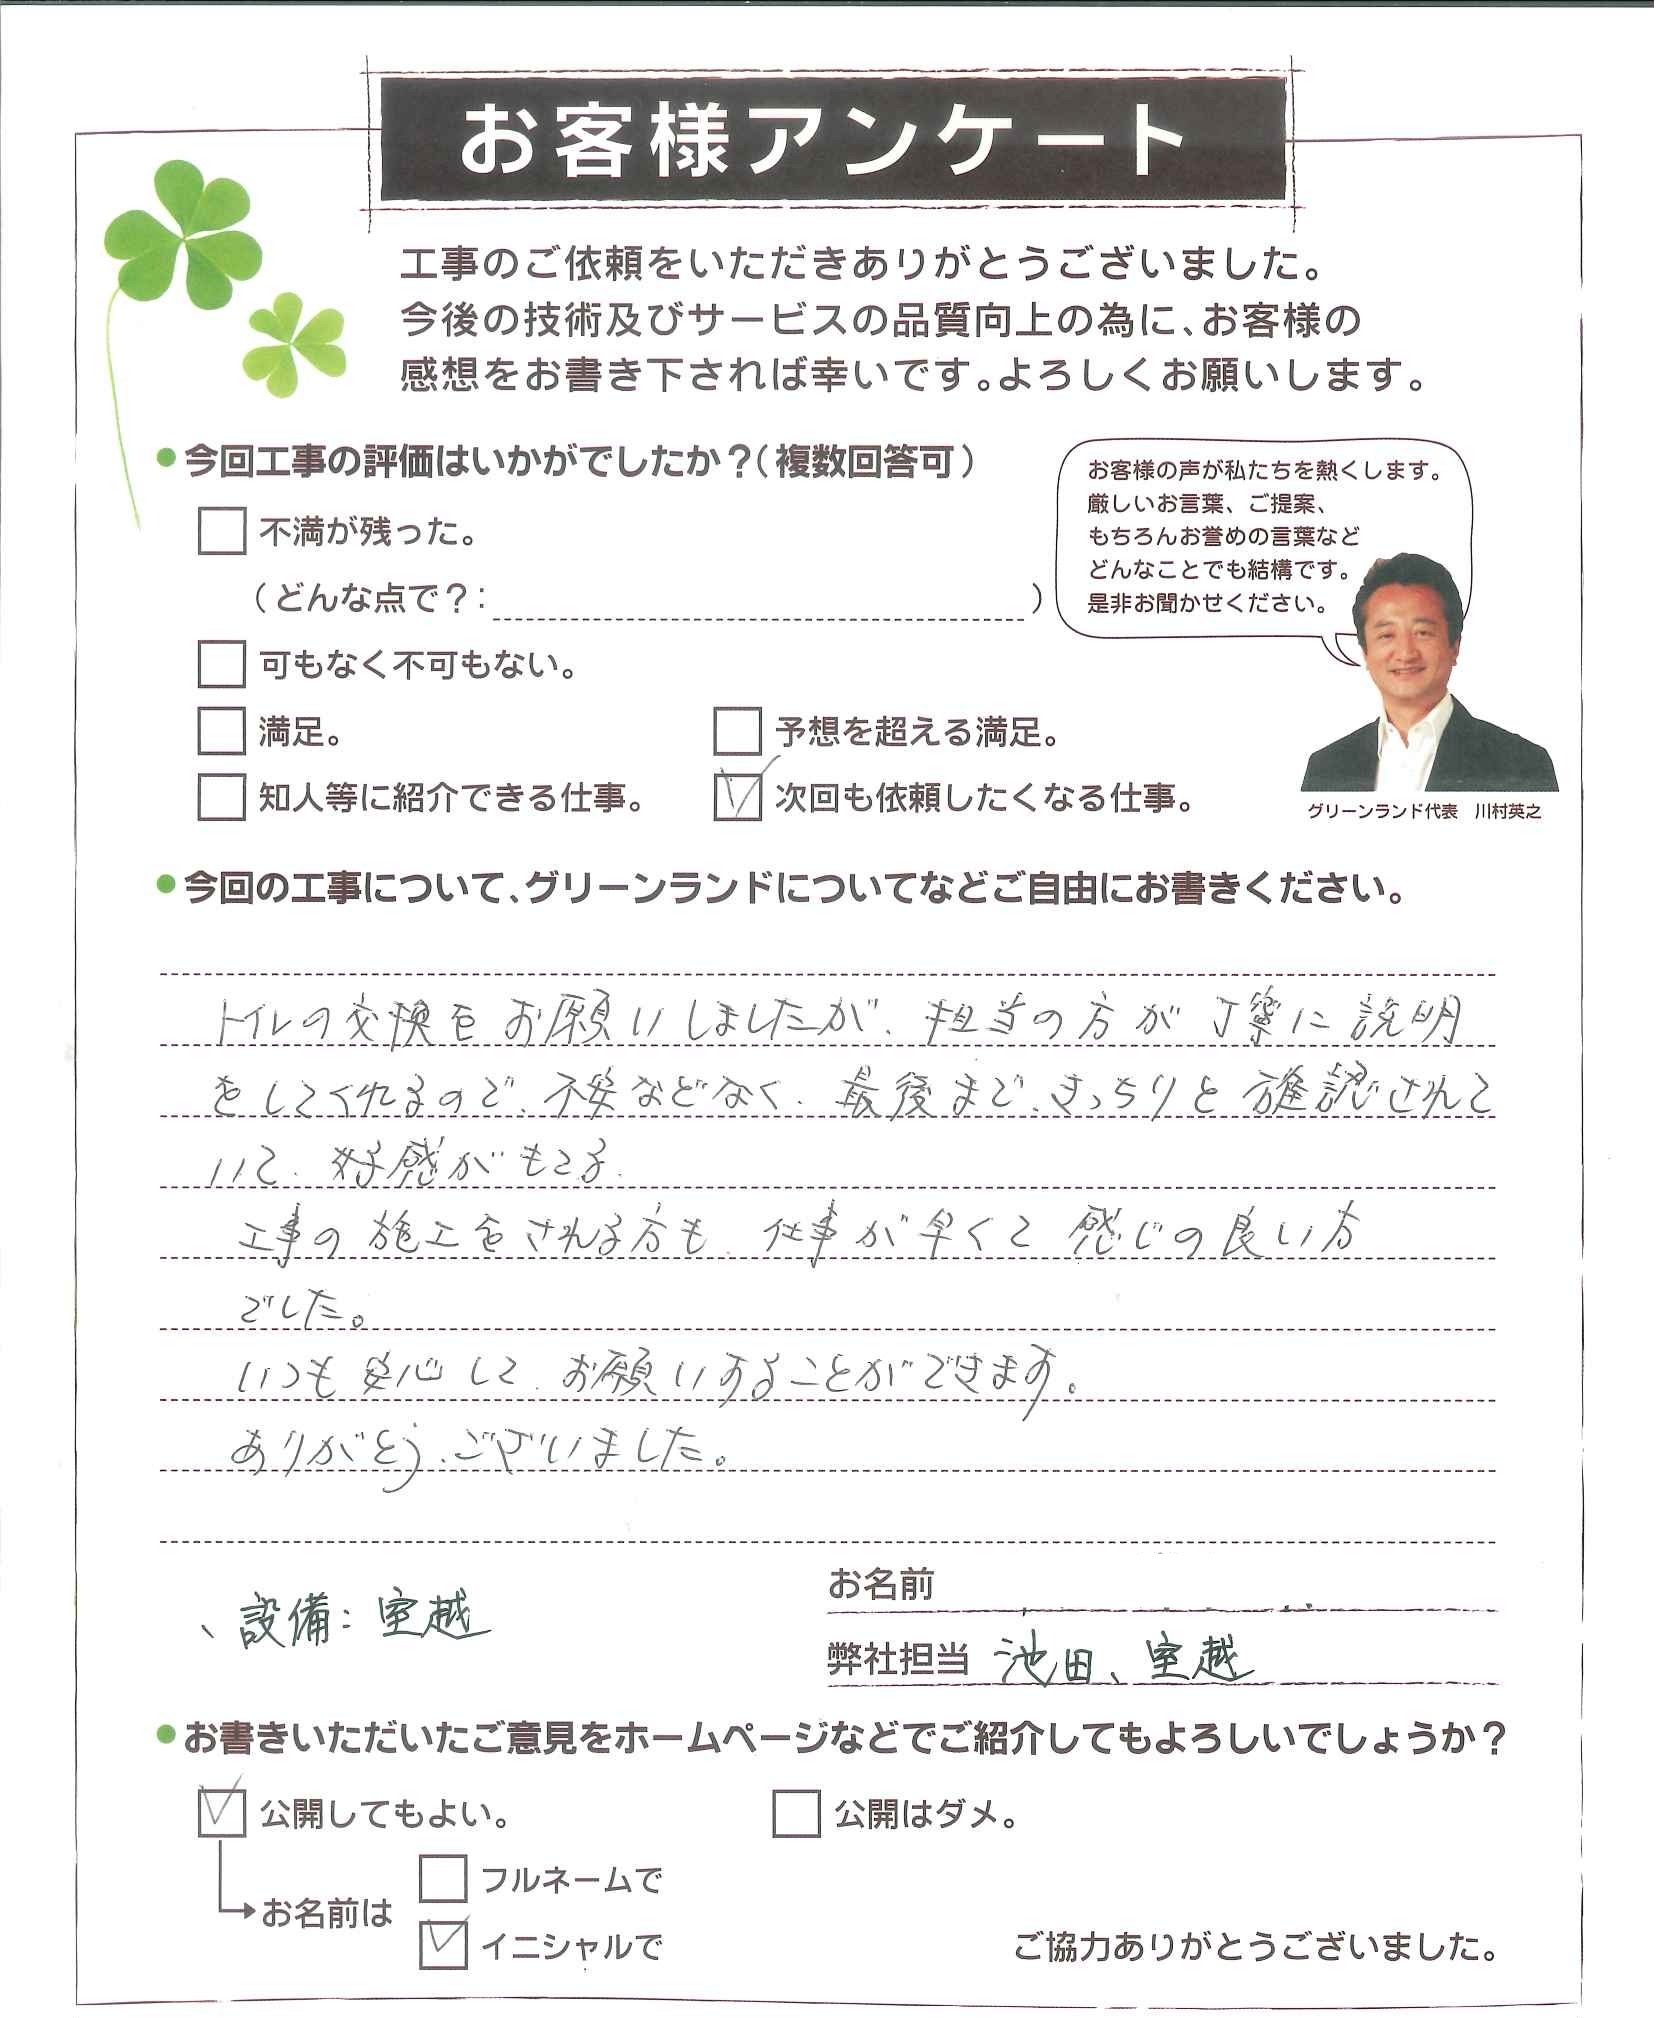 お客様アンケート
工事のご依頼をいただきありがとうございました。
今後の技術及びサービスの品質向上の為に、お客様の
感想をお書き下されば幸いです。よろしくお願いします。
●今回工事の評価はいかがでしたか?(複数回答可)
不満が残った。
(どんな点で?: )
可もなく不可もない。
満足。
予想を超える満足。
知人等に紹介できる仕事。
次回も依頼したくなる仕事。
お客様の声が私たちを熱くします。
厳しいお言葉、ご提案、
もちろんお誉めの言葉など
どんなことでも結構です。
是非お聞かせください。
グリーンランド代表 川村英之
●今回の工事について、グリーンランドについてなどご自由にお書きください。
トイレの交換をお願いしましたが、担当の方が丁寧に説明
をしてくれるので、不安などなく、最後まで、きっちりと確認されて
いて、好感がもてる。
工事の施工をされる方も、仕事が早くて感じの良い方
でした。
いつも安心して、お願いすることができます。
ありがとう、ございました。
、設備:室越
お名前
弊社担当 池田、室越
●お書きいただいたご意見をホームページなどでご紹介してもよろしいでしょうか?
公開してもよい。
公開はダメ。
お名前は
フルネームで
イニシャルで
ご協力ありがとうございました。